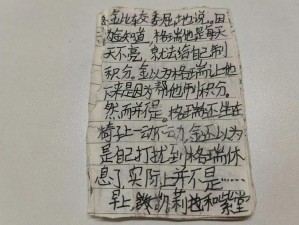 金比较委屈。地说。因
为金知道，格瑞他是每天
天不亮，就去给自己刷
积分。金以为格瑞让他
下来是因为帮他刷积分。
然而并不是。格瑞还坐在
椅子上一动不动，金还以为
是自己打扰到格瑞休
息了，实际上并不是……
早上，凯莉和紫堂